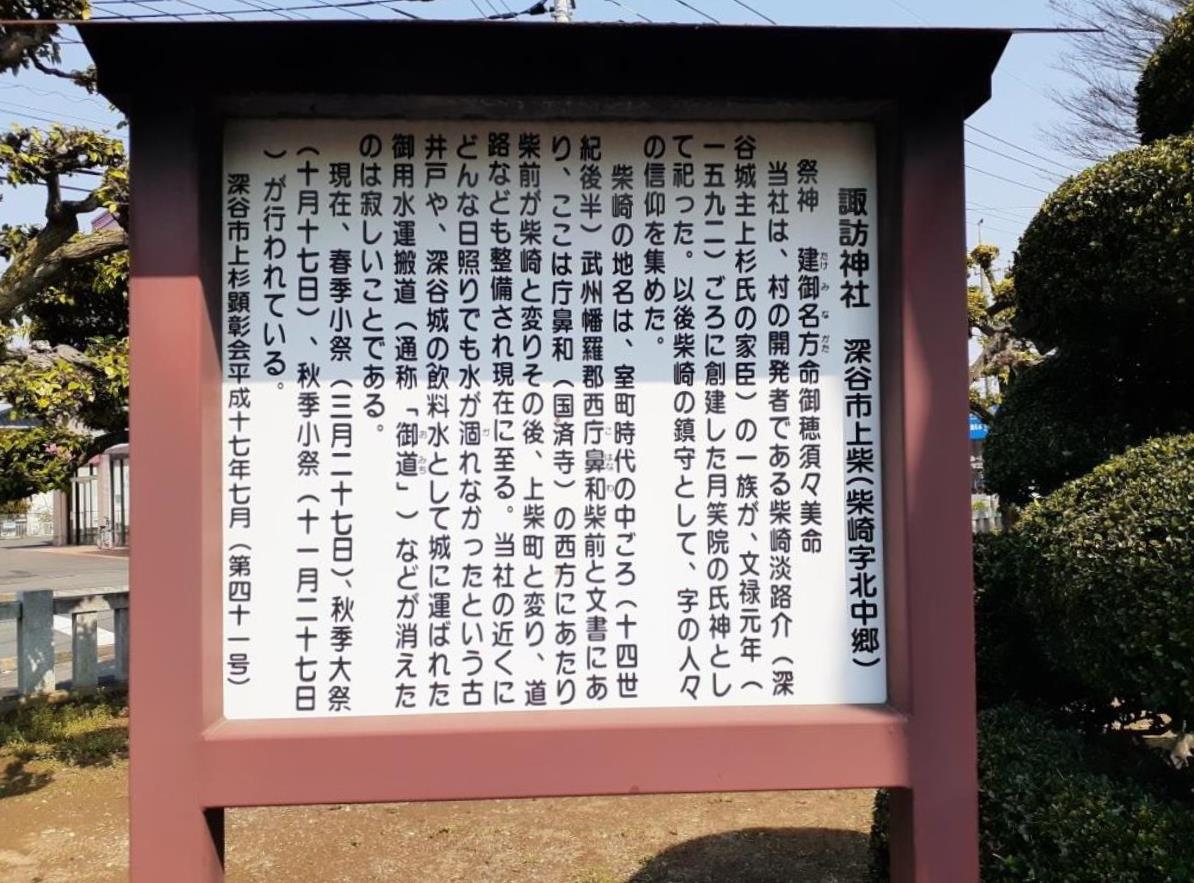 諏訪神社　深谷市上柴(柴崎字北中郷)
祭神　建御名方命御穂須々美命
当社は、村の開発者である柴崎淡路介（深
谷城主上杉氏の家臣）の一族が、文禄元年（
一五九二）ごろに創建した月笑院の氏神とし
て祀った。以後柴崎の鎮守として、字の人々
の信仰を集めた。
柴崎の地名は、室町時代の中ごろ（十四世
紀後半）武州幡羅郡西庁鼻和柴前と文書にあ
り、ここは庁鼻和（国済寺）の西方にあたり
柴前が柴崎と変りその後、上柴町と変り、道
路なども整備され現在に至る。当社の近くに
どんな日照りでも水が涸れなかったという古
井戸や、深谷城の飲料水として城に運ばれた
御用水運搬道（通称「御道」）などが消えた
のは寂しいことである。
現在、春季小祭（三月二十七日）、秋季大祭
（十月十七日）、秋季小祭（十一月二十七日
）が行われている。
深谷市上杉顕彰会平成十七年七月（第四十一号）